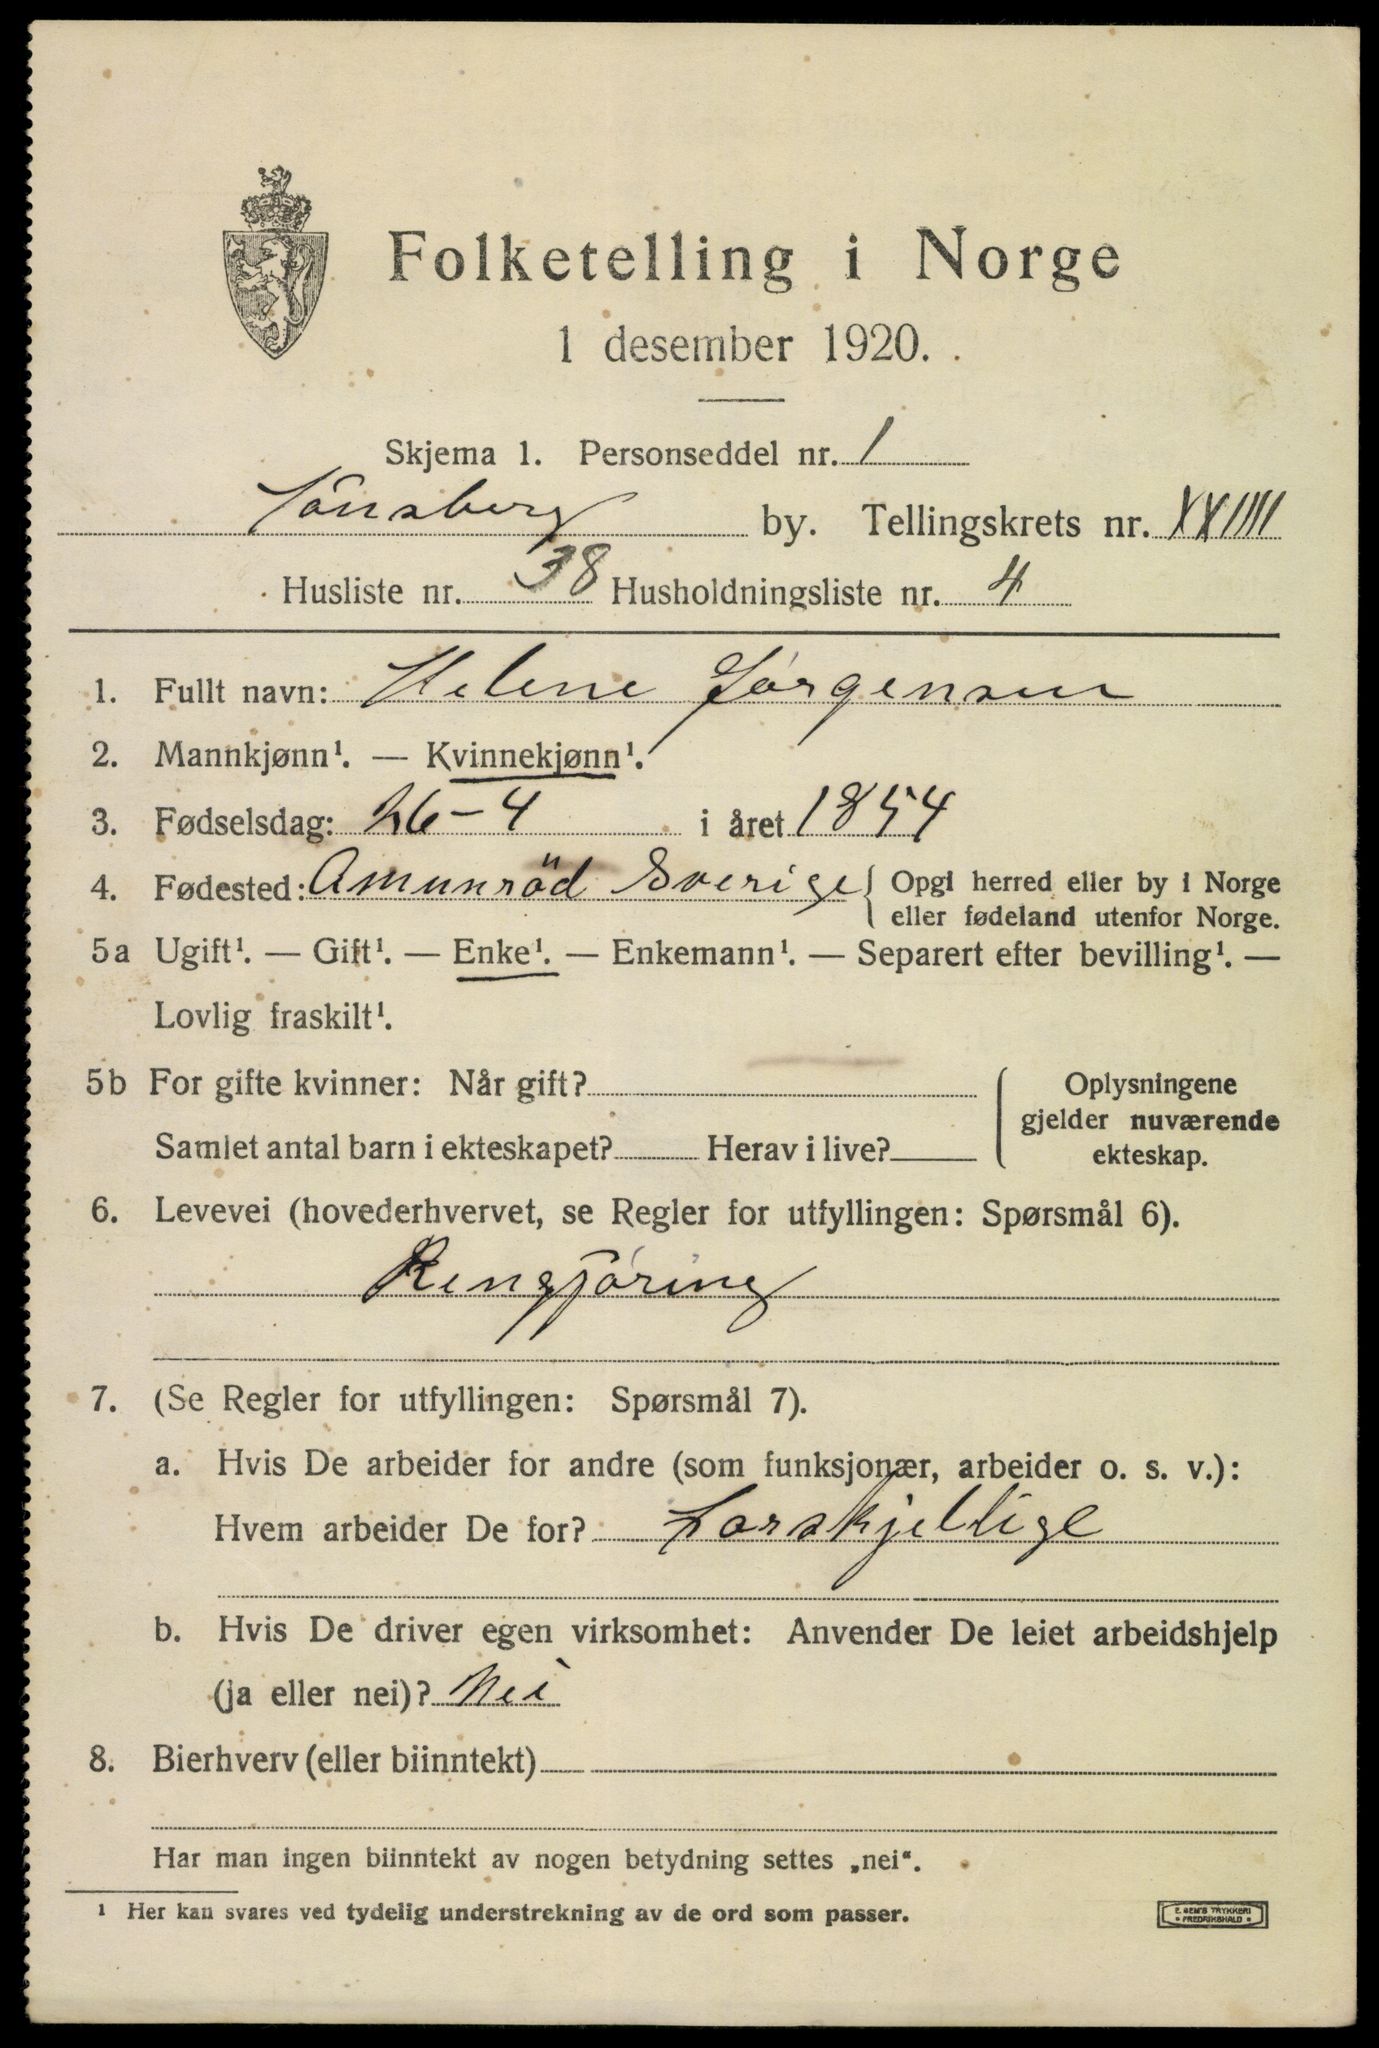 Folketelling i Norge
1 desember 1920.
Skjema 1. Personseddel nr. 1
Tønsberg by. Tellingskrets nr. XXIIII
Husliste nr. 38 Husholdningsliste nr. 4
1. Fullt navn: Helene Jørgensen
2. Mannkjønn¹. — Kvinnekjønn¹.
3. Fødselsdag: 26-4 i året 1854
4. Fødested: Amunröd Sverige { Opgi herred eller by i Norge
eller fødeland utenfor Norge.
5a Ugift¹. — Gift¹. — Enke¹. — Enkemann¹. — Separert efter bevilling¹. —
Lovlig fraskilt¹.
5b For gifte kvinner: Når gift?
Samlet antal barn i ekteskapet? Herav i live?
Oplysningene
gjelder nuværende
ekteskap.
6. Levevei (hovederhvervet, se Regler for utfyllingen: Spørsmål 6).
Rengjøring
7. (Se Regler for utfyllingen: Spørsmål 7).
a. Hvis De arbeider for andre (som funksjonær, arbeider o. s. v.):
Hvem arbeider De for? Forskjellige
b. Hvis De driver egen virksomhet: Anvender De leiet arbeidshjelp
(ja eller nei)? Nei
8. Bierhverv (eller biinntekt)
Har man ingen biinntekt av nogen betydning settes „nei“.
¹ Her kan svares ved tydelig understrekning av de ord som passer.
E. SEM'S TRYKKERI
• FREDRIKSHALD •